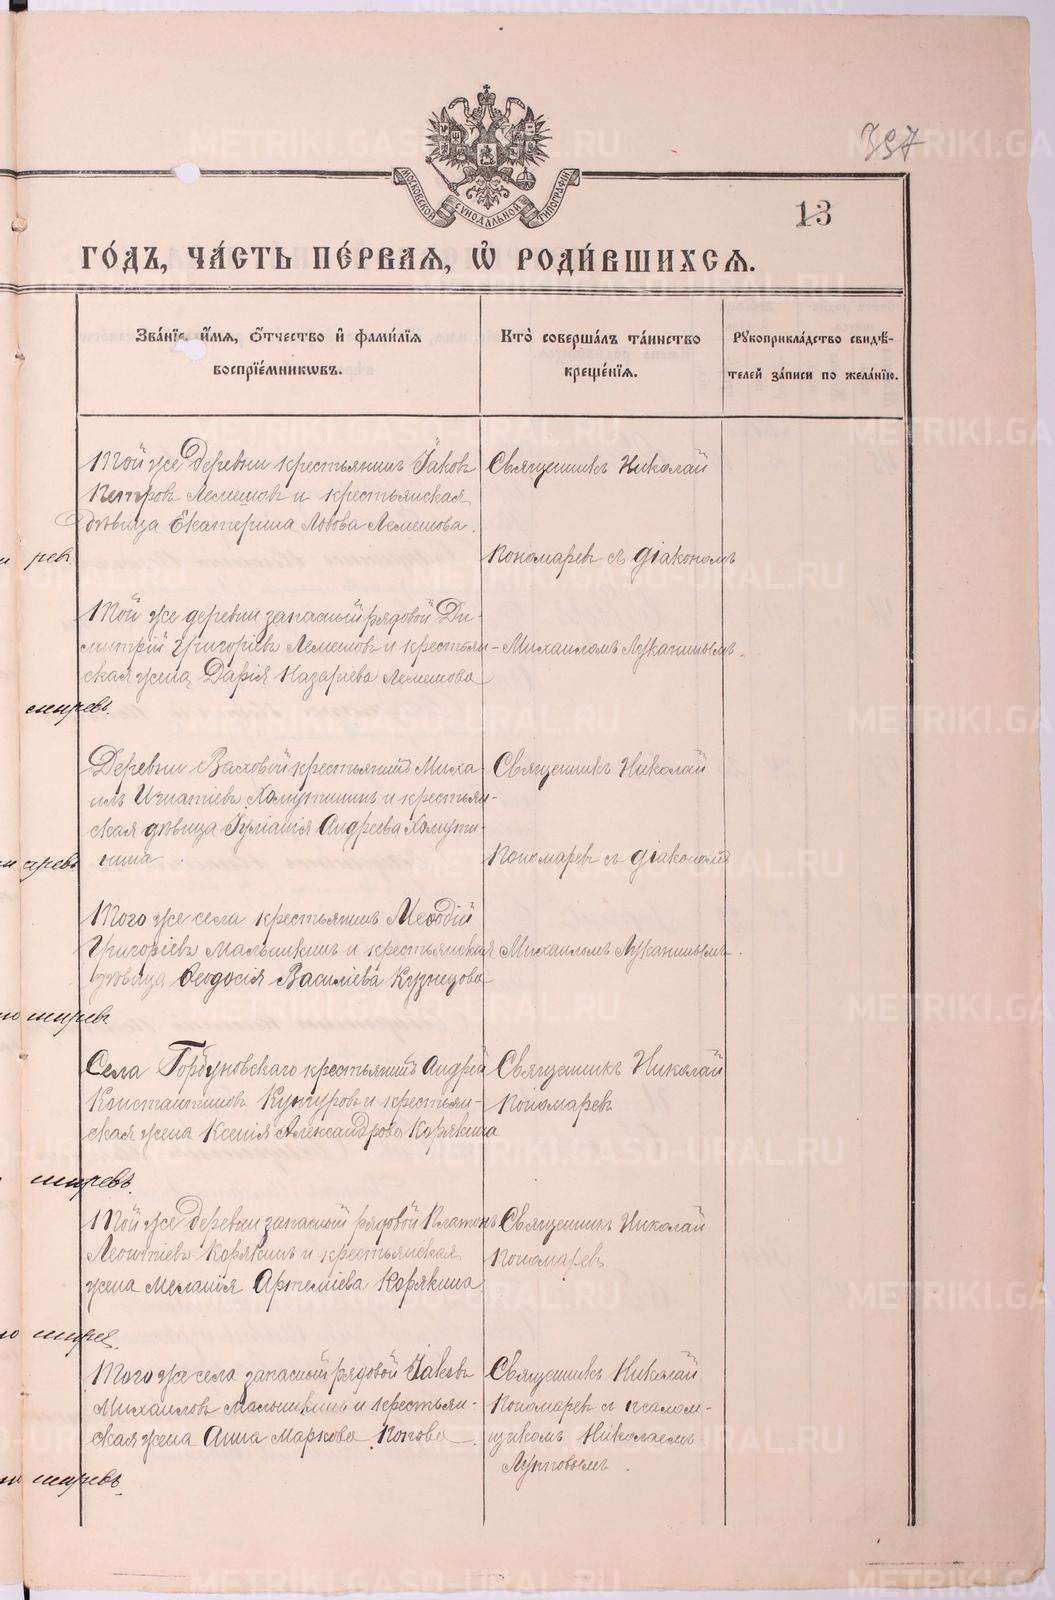 397
13
МОСКОВСКОЙ СѴНОДАЛЬНОЙ ТИПОГРАФІИ
ГО́ДЪ, ЧА́СТЬ ПЕ́РВАѦ, Ѽ РОДИ́ВШИХСѦ.
Зва́нїе, и́мѧ, ѻ́тчество и҆ фами́лїѧ
воспрїе́мникѡвъ.
Кто̀ соверша́лъ та́инство
креще́нїѧ.
Рꙋкоприкла́дство свидѣ́-
телей за́писи по жела́нїю.
Той же деревни крестьянинъ Іаковъ
Петровъ Лемешовъ и крестьянская
дѣвица Екатерина Ловова Лемешова.
Священникъ Николай
Пономаревъ съ діакономъ
Михаиломъ Луканинымъ.
ревъ.
Той же деревни запасный рядовой Ди-
митрій Григоріевъ Лемешовъ и крестьян-
ская жена Дарія Назаріева Лемешова
ДеревниВаховой крестьянинъ Миха-
илъ Игнатіевъ Хомутининъ и крестьян-
ская дѣвица Іуліанія Андреева Хомути-
нина.
Священникъ Николай
Пономаревъ съ діакономъ
Михаиломъ Луканинымъ.
Того же села крестьянинъ Меѳодій
Григоріевъ Малышкинъ и крестьянская
дѣвица Ѳеодосія Василіева Кузнецова
Села Горбуновскаго крестьянинъ Андрей
Константиновъ Кунгуровъ и крестьян-
ская жена Ксенія Александрова Корякина
Священникъ Николай
Пономаревъ
Той же деревни запасной рядовой Платонъ
Леонтіевъ Корякинъ и крестьянская
жена Меланія Артеміева Корякина.
Священникъ Николай
Пономаревъ
Того же села запасный рядовой Іаковъ
Михаиловъ Малышкинъ и крестьян-
ская жена Анна Маркова Попова.
Священникъ Николай
Пономаревъ съ псалом-
щикомъ Николаемъ
Лупповымъ.
METRIKI.GASO-URAL.RU